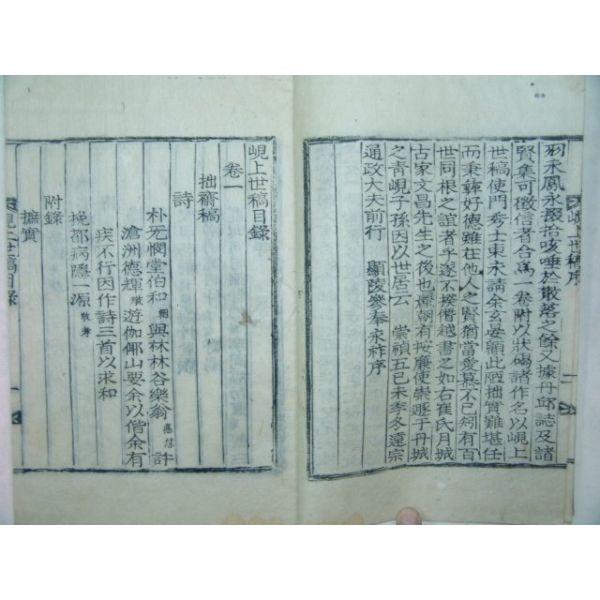 永鳳永掇拾咳唾於散落之餘又據丹邱誌及諸
賢集可徵信者合爲一卷附以狀碣諸作名以峴上
世稿使門秀士東永請余玄晏顧此陋拙實難堪任
而秉彛好德雖在他人之賢猶當愛慕不已矧有百
世同根之誼者乎遂不揆僭越書之如右崔氏月城
古家文昌先生之後也麗朝有按廉使崇遯于丹城
之靑峴子孫因以世居云 崇禎五己未季冬遠宗
通政大夫前行 顯陵參奉永祚序
峴上世稿序
峴上世稿目錄
卷一
拙齋稿
詩
朴無憫堂伯和絪興林林谷樂翁 許
滄洲德輝燉遊伽倻山要余以偕余有
疾不行因作詩三首以求和
挽都病隱一源敬孝
附錄
摭實
峴上世稿目錄
一